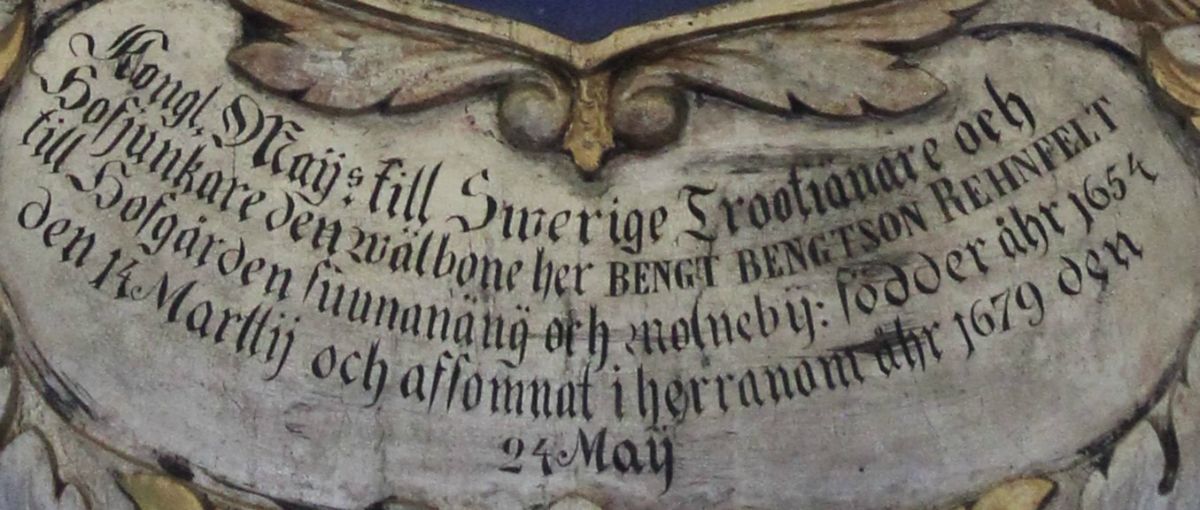 Kongl. Maÿs: till Swerige Trootiänare och
Hofjunkare den wälbone her BENGT BENGTSON REHNFELT
till Hofgården sunnanäng̈ och molnebÿ: födder åhr 1654
den 14 Martij och afsom̄nat i herranom åhr 1679 den
24 Maÿ